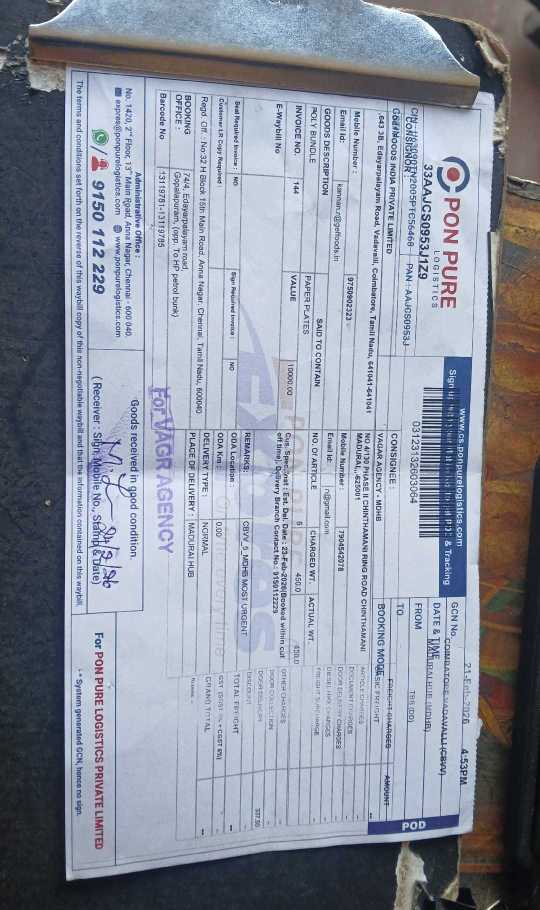 PON PURE
LOGISTICS
33AAJCS0953J1Z9
PAN : AAJCS0953J
www.cs.ponpurelogistics.com
03123132603064
GCN No.
DATE & TIME
21-Feb-2026
4:53PM
FROM
COIMBATORE-VADAVALLI (CBVV)
TO
MADURAI HUB (MDHB)
BOOKING MODE
TBB (DD)
POD
GOEL FOODS INDIA PRIVATE LIMITED
643 3B, Edayarpalayam Road, Vadavalli, Coimbatore, Tamil Nadu, 641041-641041
Mobile Number :
9750902323
Email Id:
CONSIGNEE :
VAGAR AGENCY - MDHB
NO 4/130 PHASE II CHINTHAMANI RING ROAD CHINTHAMANI
MADURAI,-625001
Mobile Number :
7904542078
Email Id:
GOODS DESCRIPTION
SAID TO CONTAIN
NO. OF ARTICLE
CHARGED WT.
ACTUAL WT.
POLY BUNDLE
PAPER PLATES
5
450.0
450.0
INVOICE NO.
144
VALUE
10000.00
E-Waybill No
Seal Required Invoice :
NO
Sign Required Invoice :
NO
Customer LR Copy Required :
Cus. Spec. Inst : Est. Del. Date : 23-Feb-2026(Booked within cut
off time), Delivery Branch Contact No.: 9150112229
REMARKS:
CBVV_5_MDHB MOST URGENT
ODA Location :
ODA Km :
0.00
DELIVERY TYPE :
NORMAL
PLACE OF DELIVERY :
MADURAI HUB
FREIGHT CHARGES
AMOUNT
BASIC FREIGHT
ARTICLE CHARGES
DOCUMENT CHARGES
DOOR DELIVERY CHARGES
OTHER CHARGES
DOOR COLLECTION
DISCOUNT
TOTAL FREIGHT
GRAND TOTAL
Regd. Off. : No:32 H Block 15th Main Road, Anna Nagar, Chennai, Tamil Nadu, 600040
BOOKING
OFFICE :
74/4, Edayarpalayam road,
Gopalapuram, (opp. To HP petrol bunk)
Barcode No
13119781-13119785
For VAGR AGENCY
Goods received in good condition.
(Receiver : Sign, Mobile No., Stamp & Date)
Administrative Office :
No. 1420, 2nd Floor, 13th Main Road, Anna Nagar, Chennai - 600 040.
expres@ponpurelogistics.com
www.ponpurelogistics.com
9150 112 229
For PON PURE LOGISTICS PRIVATE LIMITED
* System generated GCN, hence no sign.
The terms and conditions set forth on the reverse of this waybill copy of this non-negotiable waybill and that the information contained on this waybill.